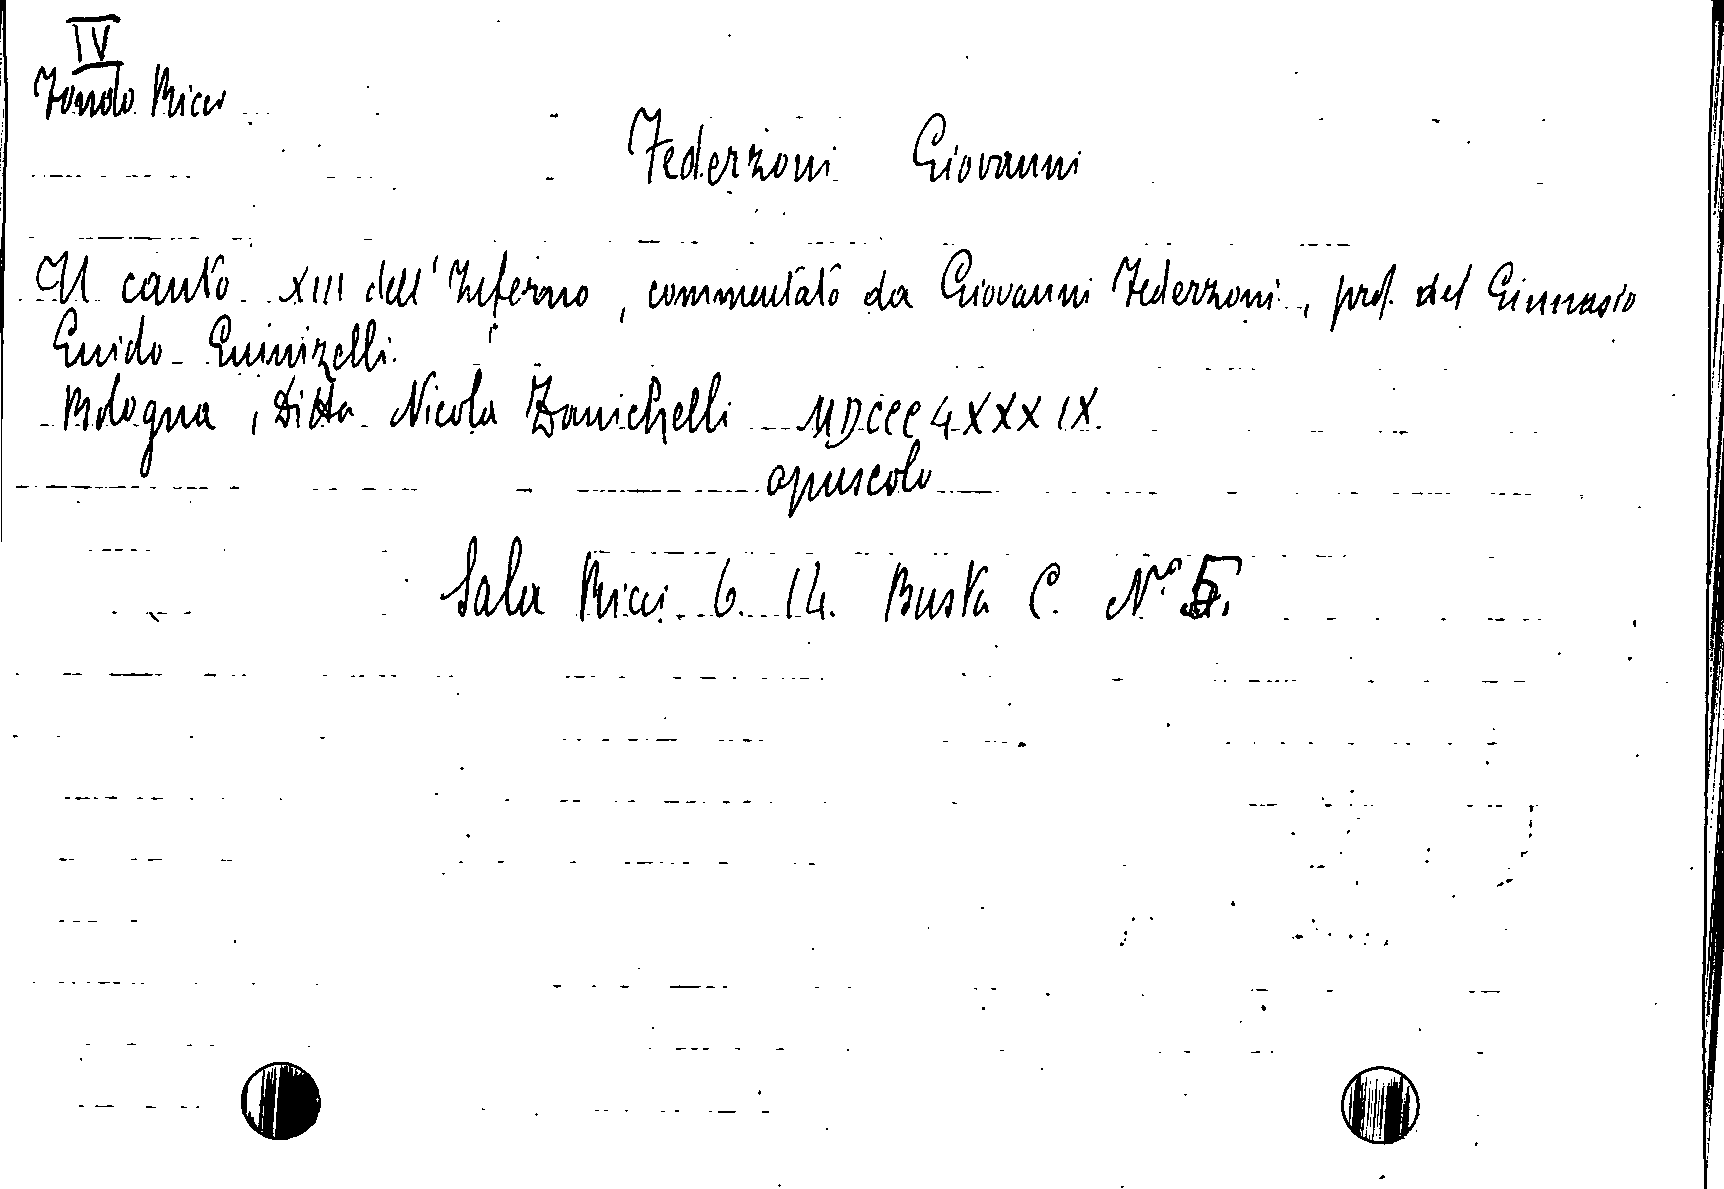 IV
Fondo Ricci
Federzoni Giovanni
Il canto XIII dell'Inferno, commentato da Giovanni Federzoni, prof. del Ginnasio
Guido Guinizelli.
Bologna, Ditta Nicola Zanichelli MDCCCLXXXIX.
opuscolo
Sala Ricci 6. 14. Busta C. N.° 5.